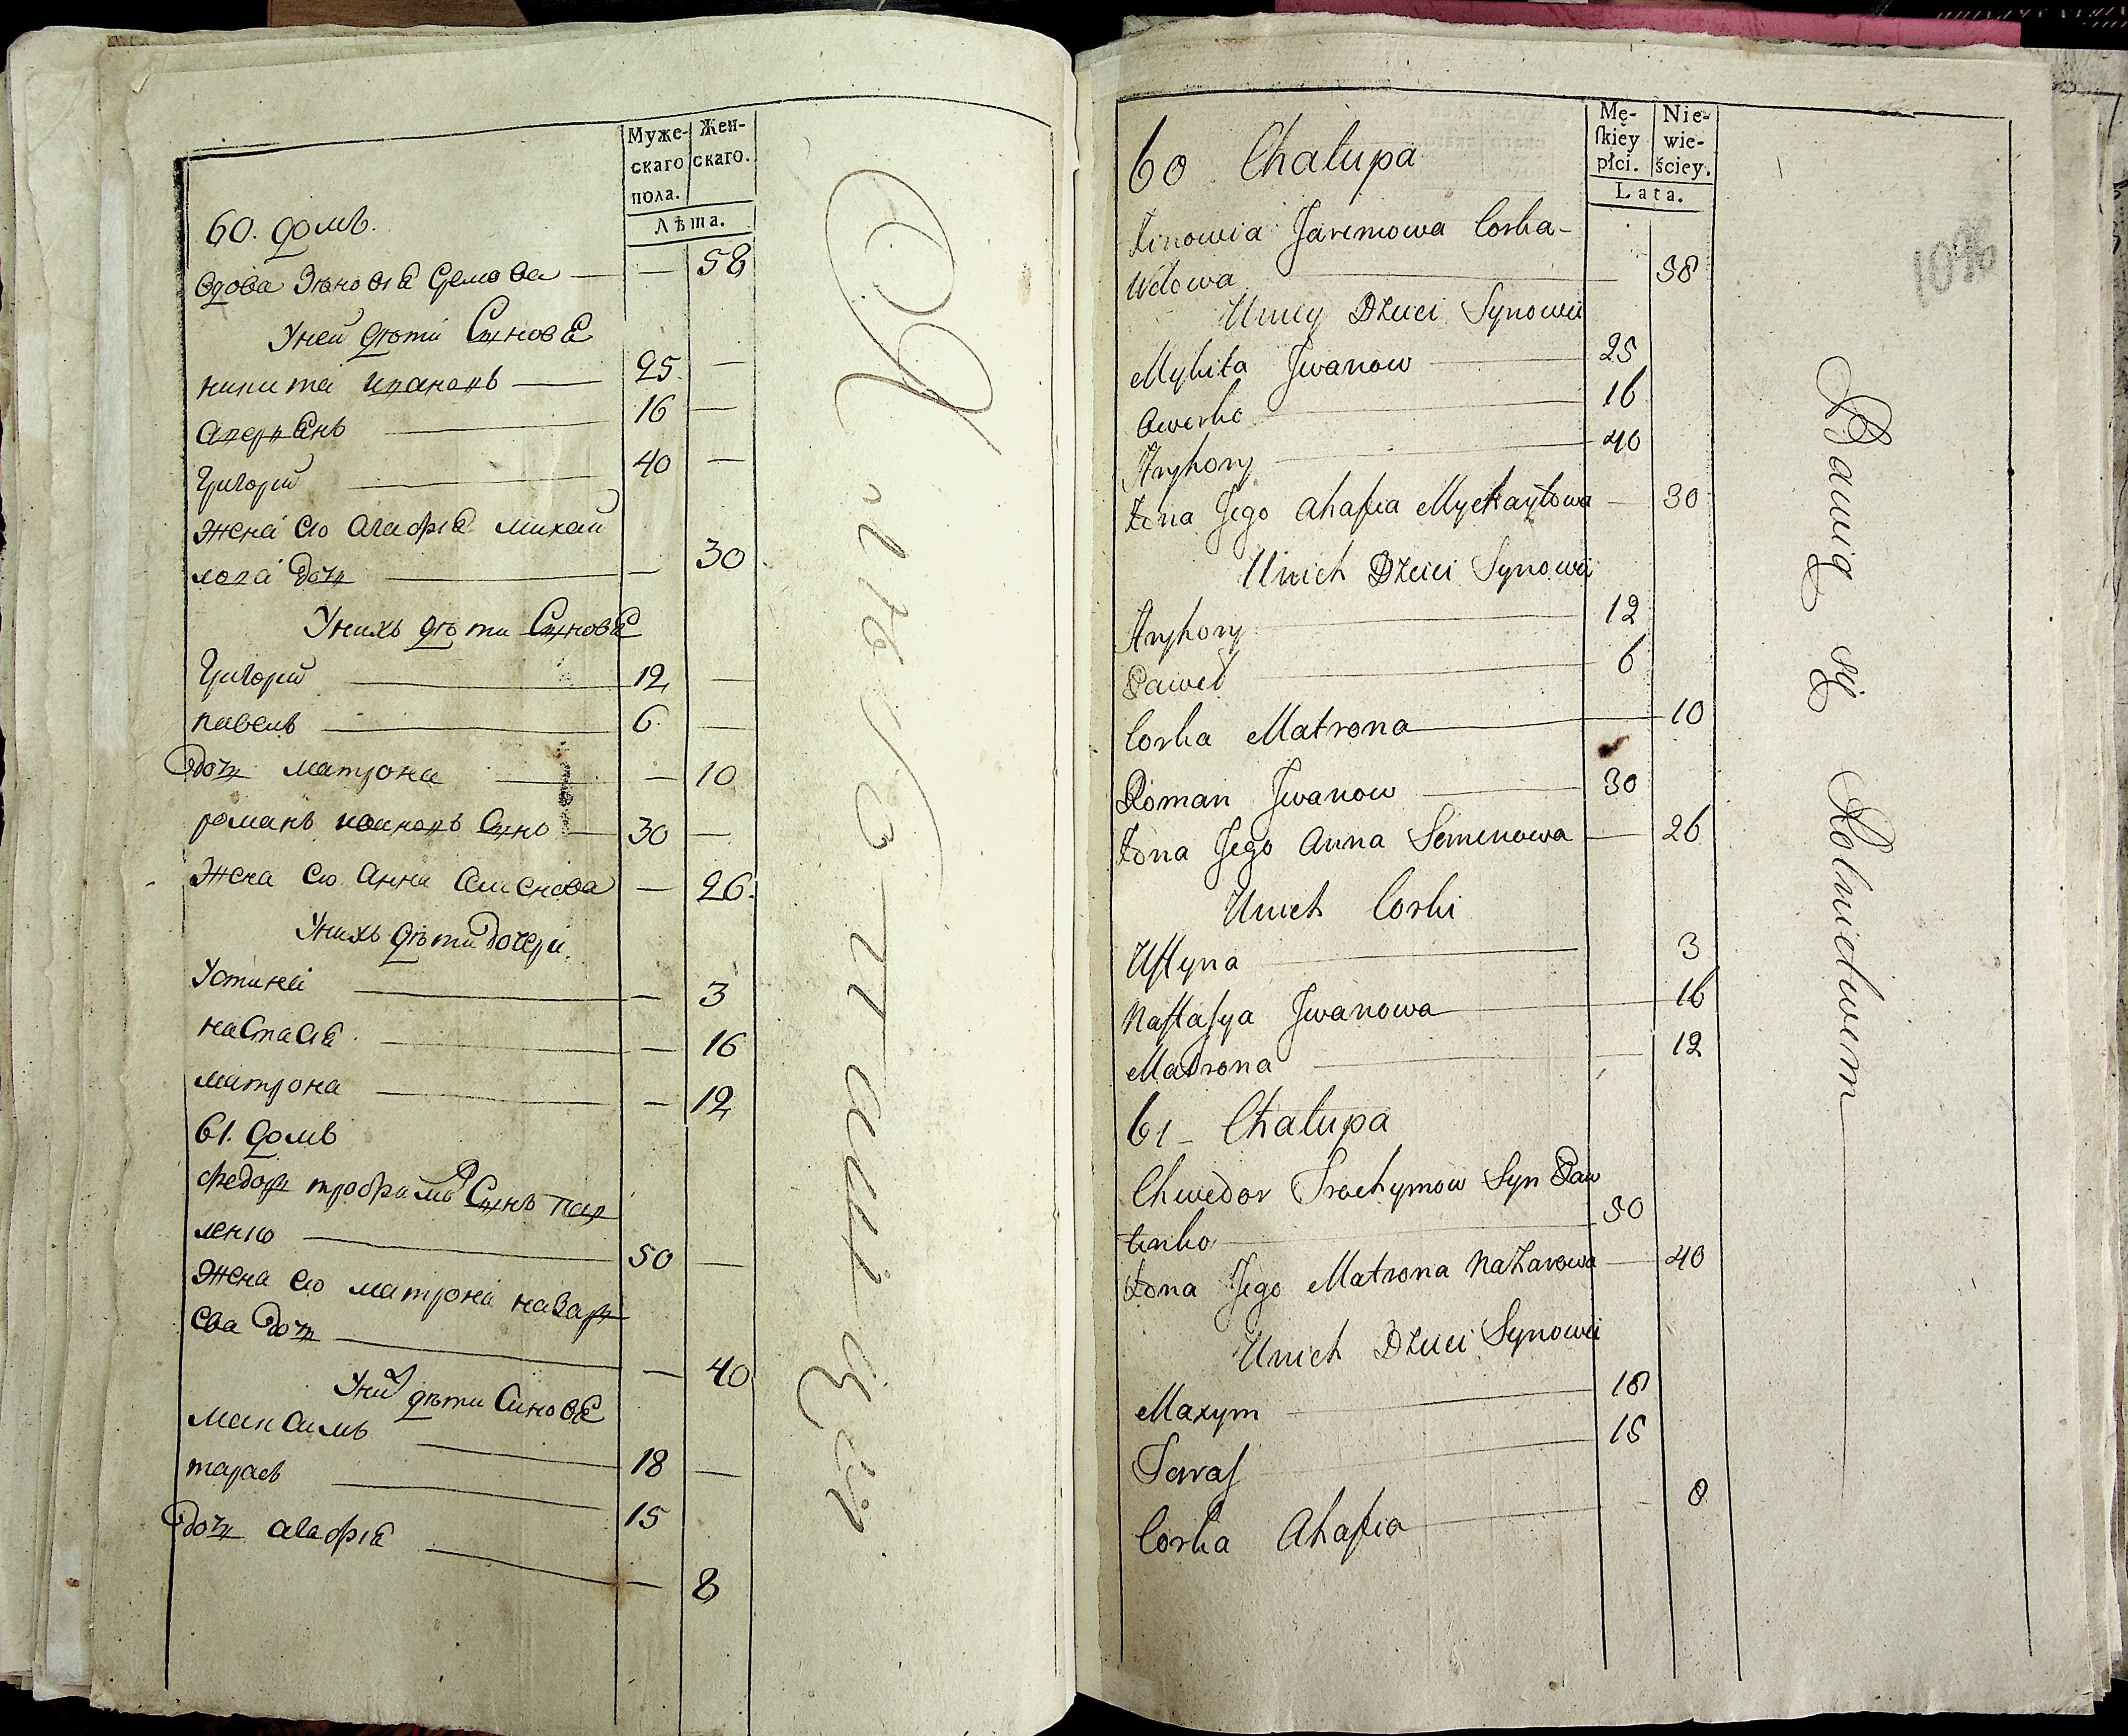 Муже-
скаго
пола.
Жен-
скаго.
Лѣта.
60. домъ.
вдова Зѣновiя — — 58
У ней дѣти Сынове
никита ивановъ — 25 —
аверкѣнъ — 16 —
Григорiй — 40 —
жена его агафiя михай
лова дочь — — 30
У нихъ дѣти Сынове
Григорiй — 12 —
павелъ — 6 —
дочь матрона — — 10
романъ ивановъ Сынъ — 30 —
жена его анна семенова — 26
У нихъ дѣти дочери.
Устина — — 3
настасiя — — 16
матрона — — 12
61. домъ
федоръ трофимовъ Сынъ пав
ленко — 50 —
жена его матрона назаро
ева дочь — — 40
У них дѣти Синовѣ
максимъ — 18 —
тарасъ — 15
дочь агафiя — — 8
Mę-
ſkiey
płci.
Nie-
wie-
ściey.
Lata.
1096
60 Chałupa
Zinowia Jaremowa Corka -
Wdowa — 58
U niey Dzieci Synowie
Mykita Jwanow — 25
Owerko — 16
Hryhory — 40
Zona Jego Ahafia Mychayłowa — 30
U nich Dzieci Synowie
Hryhory — 12
Paweł — 6
Corka Matrona — 10
Roman Jwanow — 30
Zona Jego Anna Semenowa — 26
U nich Corki
Uſtyna — 3
Naſtaſya Jwanowa — 16
Matrona — 12
61 - Chałupa
Chwedor Trochymow Syn Paw
łenko — 50
Zona Jego Matrona Nazarowa — 40
U nich Dzieci Synowie
Maxym — 18
Taraſ — 15
Corka Ahafia — 8
Bawią się Rolnictwem